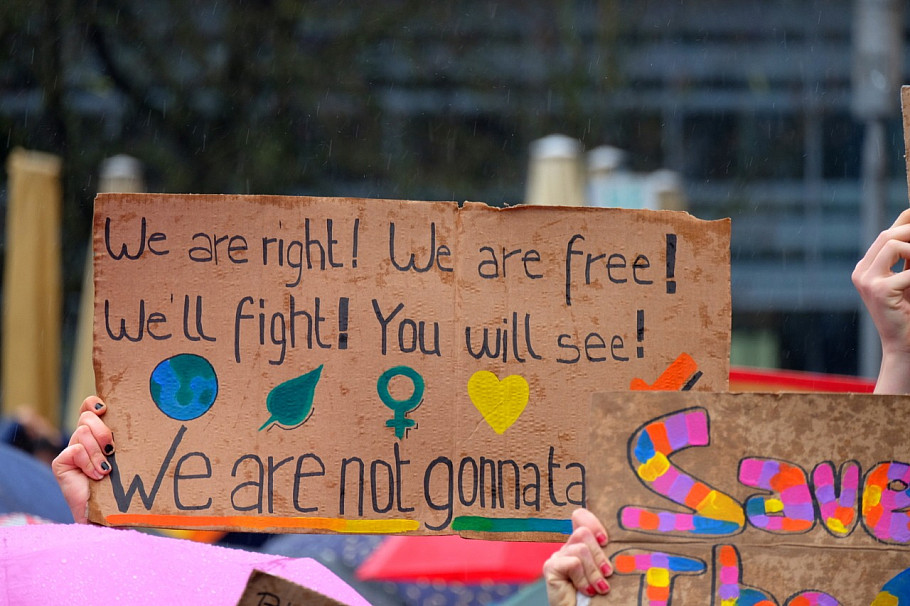 We are right! We are free!
We'll fight! You will see!
We are not gonnata
Save
The